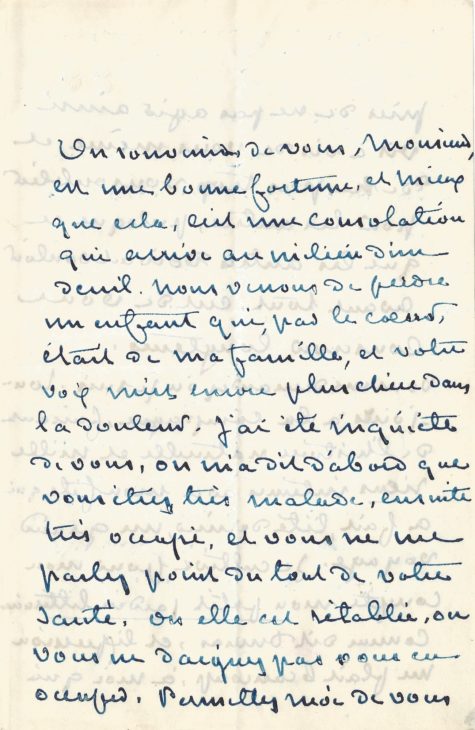 Un souvenir de vous, Monsieur,
est une bonne fortune, et mieux
que cela, c'est une consolation
qui arrive au milieu d'un
deuil. nous venons de perdre
un enfant qui, par le coeur,
était de ma famille, et votre
voix m'est encore plus chère dans
la douleur. J'ai été inquiète
de vous, on m'a dit d'abord que
vous étiez très malade, ensuite
très occupé, et vous ne me
parlez point du tout de votre
santé. ou elle est rétablie, ou
vous ne daignez pas vous en
occuper. Permettez moi de vous